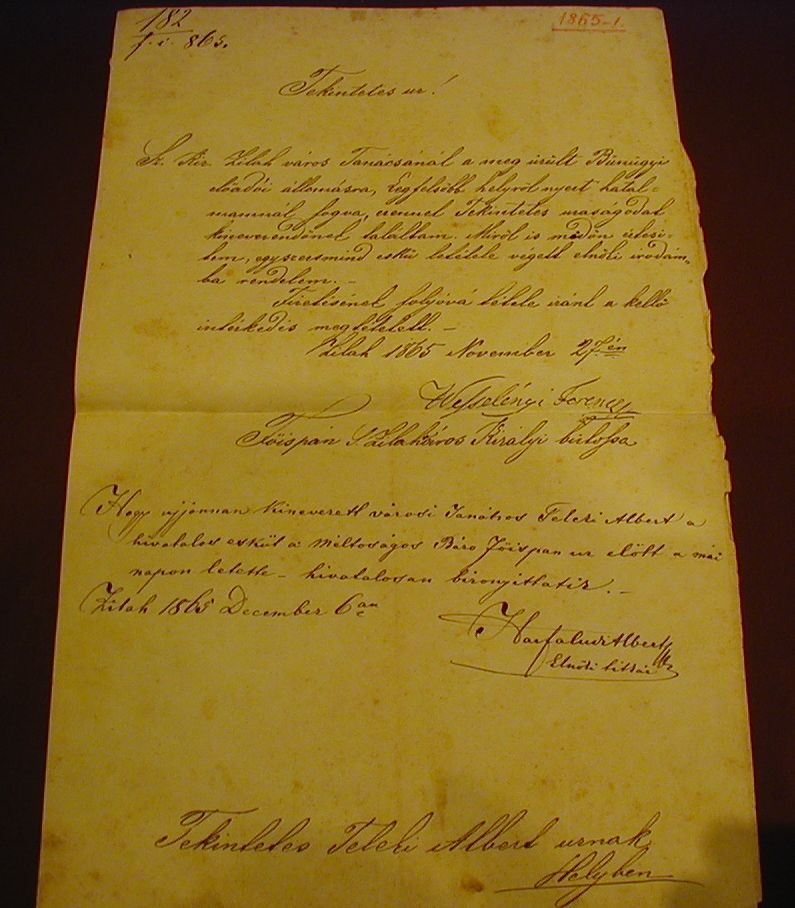 182
f. i. 865.
1865-1.
Tekintetes ur!
Sz. Kir. Zilah város Tanácsánál a meg ürült Bünügyi
előadói állomásra, Legfelsőbb helyről nyert hatal=
mamnál fogva, ezennel Tekintetes uraságodat
kinevezendőnek találtam. Miről is midőn értesi=
tem, egyszersmind eskü letétele végett elnöki irodám=
ba rendelem. –
Fizetésének folyóvá tétele iránt a kellő
intézkedés megtétetett. –
Zilah 1865 November 27-én
Wesselényi Ferencz
Főispán S. Zilahváros Királyi biztossa
Hogy ujjonnan kinevezett városi Tanátsos Teleki Albert a
hivatalos esküt a Méltoságos Báro Főispan ur előtt a mái
napon letette – hivatalosan bizonyittatik. –
Zilah 1865 December 6 án
Albert
Elnöki titkár
Tekintetes Teleki Albert urnak
Helyben